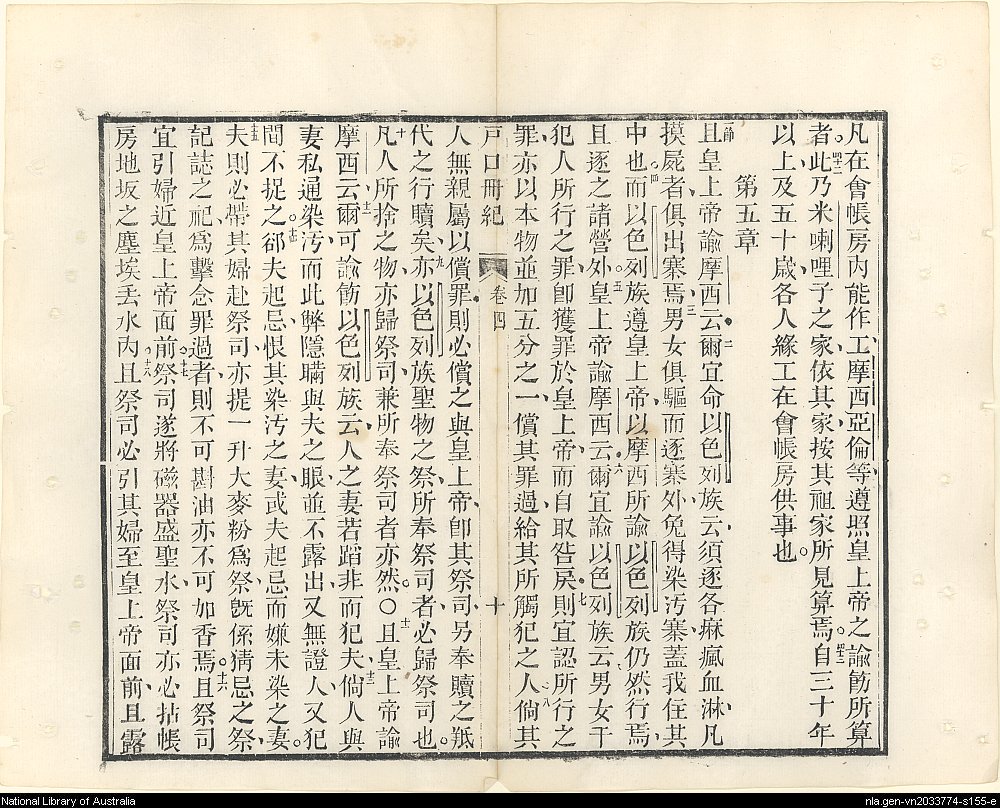 凡在會帳房內能作工摩西亞倫等遵照皇上帝之諭飭所算
者此乃米喇哩子之家依其家按其祖家所見算焉自三十年
以上及五十歲各人緣工在會帳房供事也
第五章
且皇上帝諭摩西云爾宜命以色列族云須逐各痳瘋血淋凡
摸屍者俱出寨焉男女俱驅而逐寨外免得染污寨蓋我住其
中也而以色列族遵皇上帝以摩西所諭以色列族仍然行焉
且逐之諸營外皇上帝諭摩西云爾宜諭以色列族云男女干
犯人所行之罪卽獲罪於皇上帝而自取咎戾則宜認所行之
罪亦以本物並加五分之一償其罪過給其所觸犯之人倘其
戶口冊紀 卷四 十
人無親屬以償罪則必償之與皇上帝卽其祭司另奉贖之羝
代之行贖矣亦以色列族聖物之祭所奉祭司者必歸祭司也
凡人所捨之物亦歸祭司兼所奉祭司者亦然○且皇上帝諭
摩西云爾可諭飭以色列族云人之妻若蹈非而犯夫倘人與
妻私通染污而此弊隱瞞與夫之眼並不露出又無證人又犯
間不捉之郤夫起忌恨其染污之妻或夫起忌而嫌未染之妻
夫則必帶其婦赴祭司亦提一升大麥粉爲祭旣係猜忌之祭
記誌之祀爲擊念罪過者則不可斟油亦不可加香焉且祭司
宜引婦近皇上帝面前祭司遂將磁器盛聖水祭司亦必拈帳
房地坂之塵埃丟水內且祭司必引其婦至皇上帝面前且露
National Library of Australia
nla.gen-vn2033774-s155-e